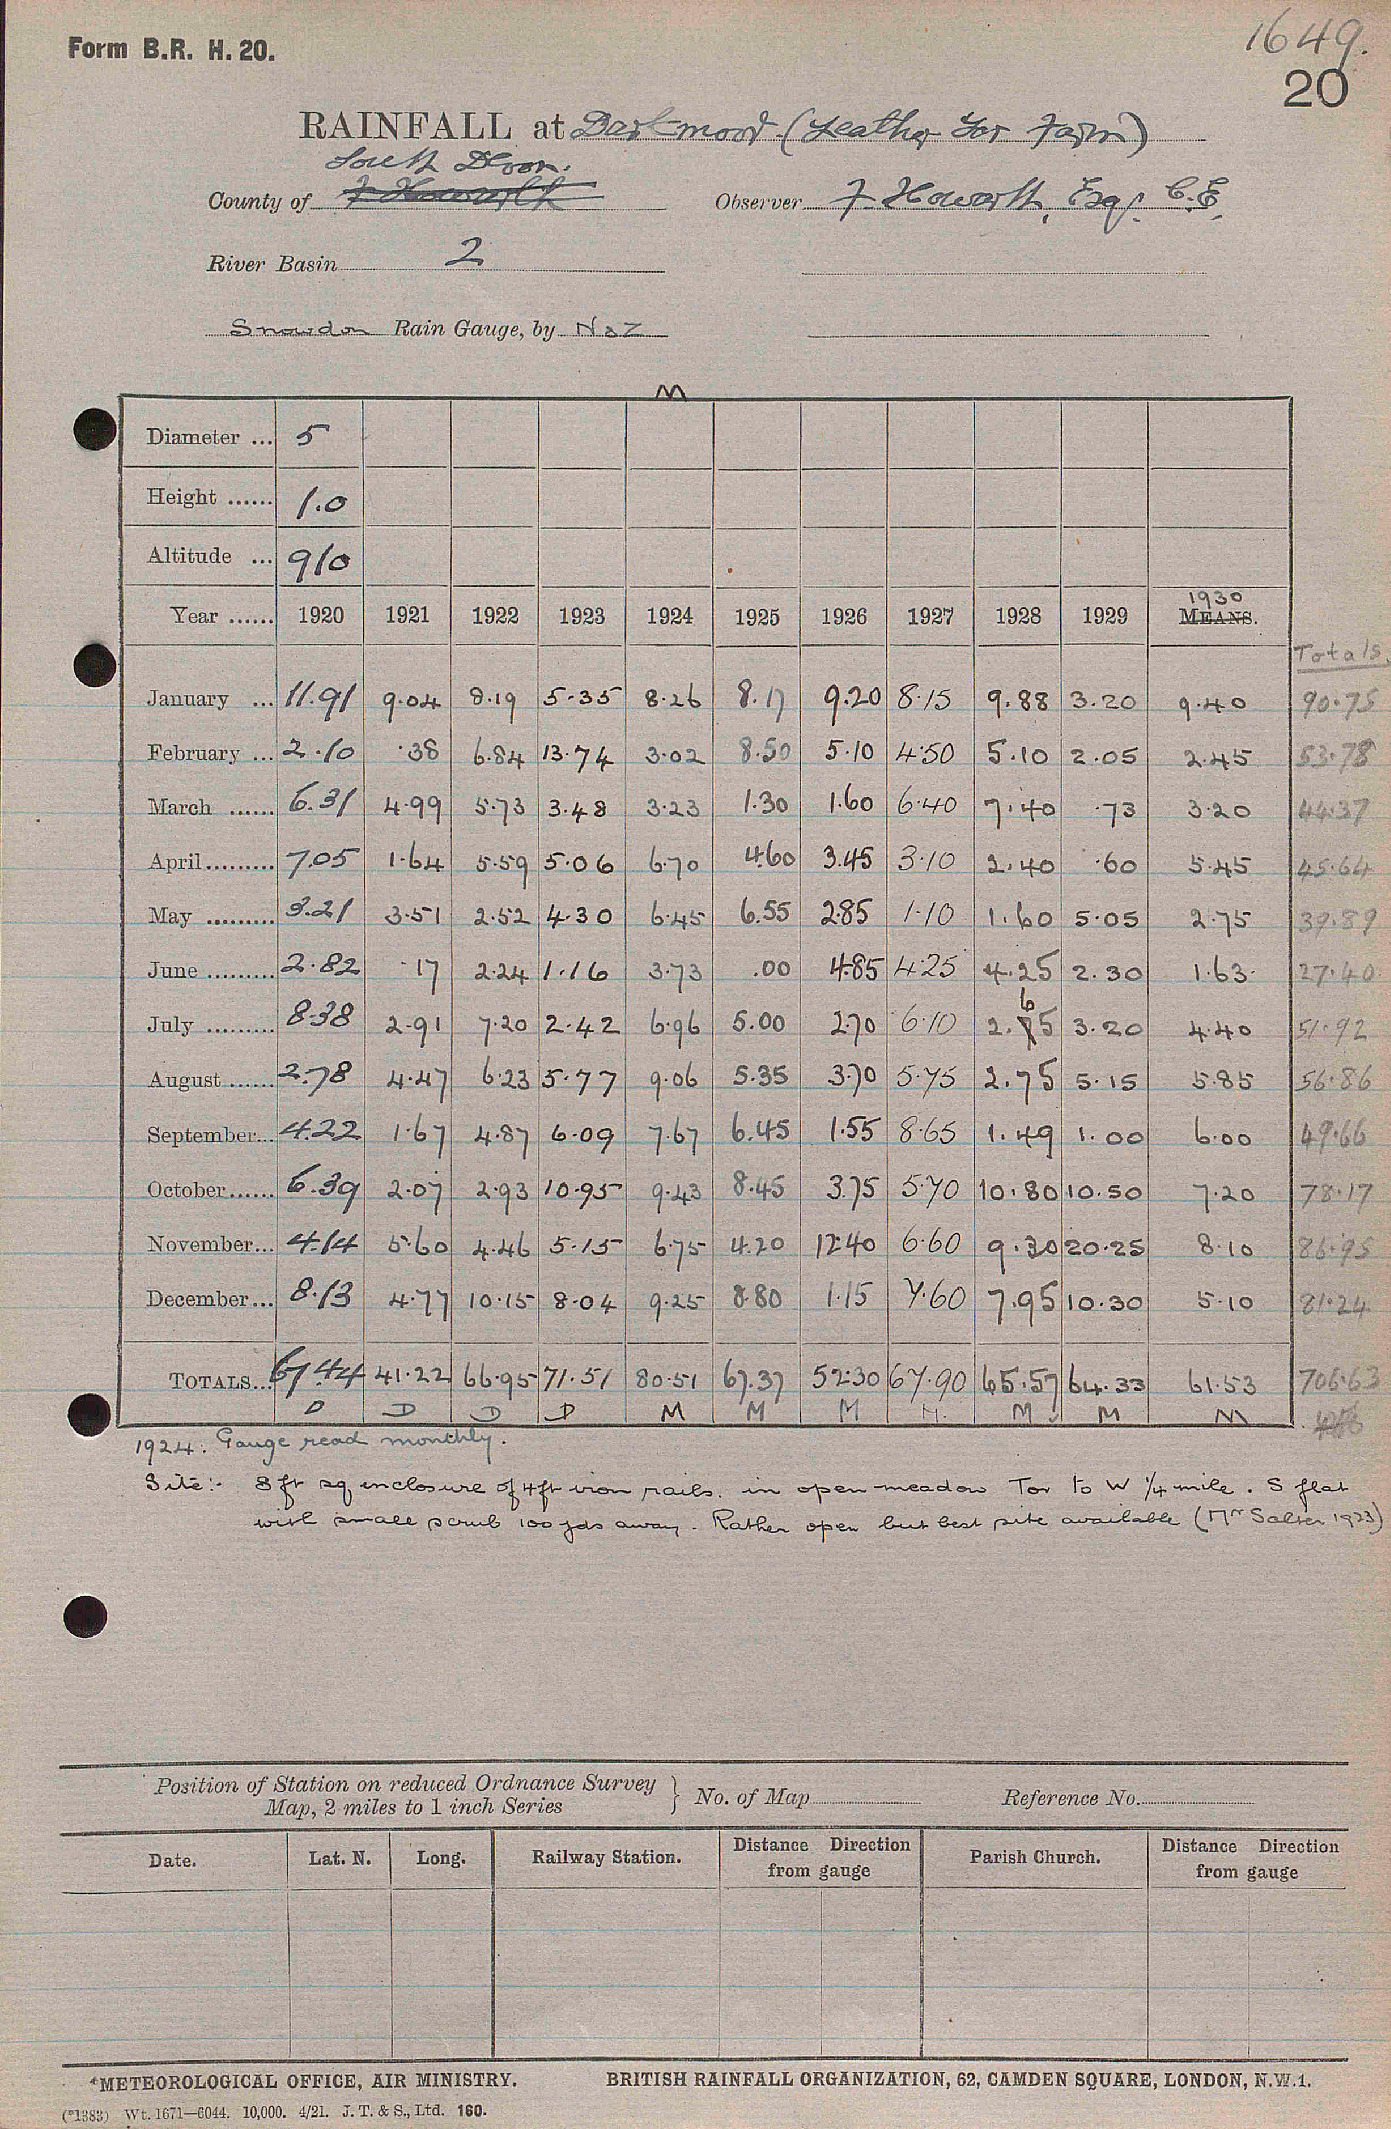 Form B.R. H. 20.
1649.
20
RAINFALL at Dartmoor (Leather Tor Farm)
South Devon.
County of F Howorth Observer F Howorth, Esq., C.E.
River Basin 2
Snowdon Rain Gauge, by N&Z
M
Diameter ... 5
Height ...... 1.0
Altitude ... 910
1930
Year ...... 1920 1921 1922 1923 1924 1925 1926 1927 1928 1929 MEANS.
Totals
January ... 11.91 9.04 8.19 5.35 8.26 8.17 9.20 8.15 9.88 3.20 9.40 90.75
February ... 2.10 .38 6.84 13.74 3.02 8.50 5.10 4.50 5.10 2.05 2.45 53.78
March ...... 6.31 4.99 5.73 3.48 3.23 1.30 1.60 6.40 7.40 .73 3.20 44.37
April ......... 7.05 1.64 5.59 5.06 6.70 4.60 3.45 3.10 2.40 .60 5.45 45.64
May ......... 3.21 3.51 2.52 4.30 6.45 6.55 2.85 1.10 1.60 5.05 2.75 39.89
June ......... 2.82 .17 2.24 1.16 3.73 .00 4.85 4.25 4.25 2.30 1.63 27.40
July ......... 8.38 2.91 7.20 2.42 6.96 5.00 2.70 6.10 2.65 3.20 4.40 51.92
August ...... 2.78 4.47 6.23 5.77 9.06 5.35 3.70 5.75 2.75 5.15 5.85 56.86
September... 4.22 1.67 4.87 6.09 7.67 6.45 1.55 8.65 1.49 1.00 6.00 49.66
October...... 6.39 2.07 2.93 10.95 9.43 8.45 3.75 5.70 10.80 10.50 7.20 78.17
November... 4.14 5.60 4.46 5.15 6.75 4.20 12.40 6.60 9.30 20.25 8.10 86.95
December... 8.13 4.77 10.15 8.04 9.25 8.80 1.15 7.60 7.95 10.30 5.10 81.24
TOTALS... 67.44 41.22 66.95 71.51 80.51 67.37 52.30 67.90 65.57 64.33 61.53 706.63
D D D D M M M M M M M
1924. Gauge read monthly.
Site:- 8 ft sq enclosure of 4ft iron rails. in open meadow Tor to W 1/4 mile. S flat
with small scrub 100 yds away. Rather open but best site available (Mr Salter 1923)
Position of Station on reduced Ordnance Survey
Map, 2 miles to 1 inch Series } No. of Map Reference No.
Date. Lat. N. Long. Railway Station. Distance Direction from gauge Parish Church. Distance Direction from gauge
*METEOROLOGICAL OFFICE, AIR MINISTRY. BRITISH RAINFALL ORGANIZATION, 62, CAMDEN SQUARE, LONDON, N.W.1.
(*1383) Wt. 1671—6044. 10,000. 4/21. J. T. & S., Ltd. 160.